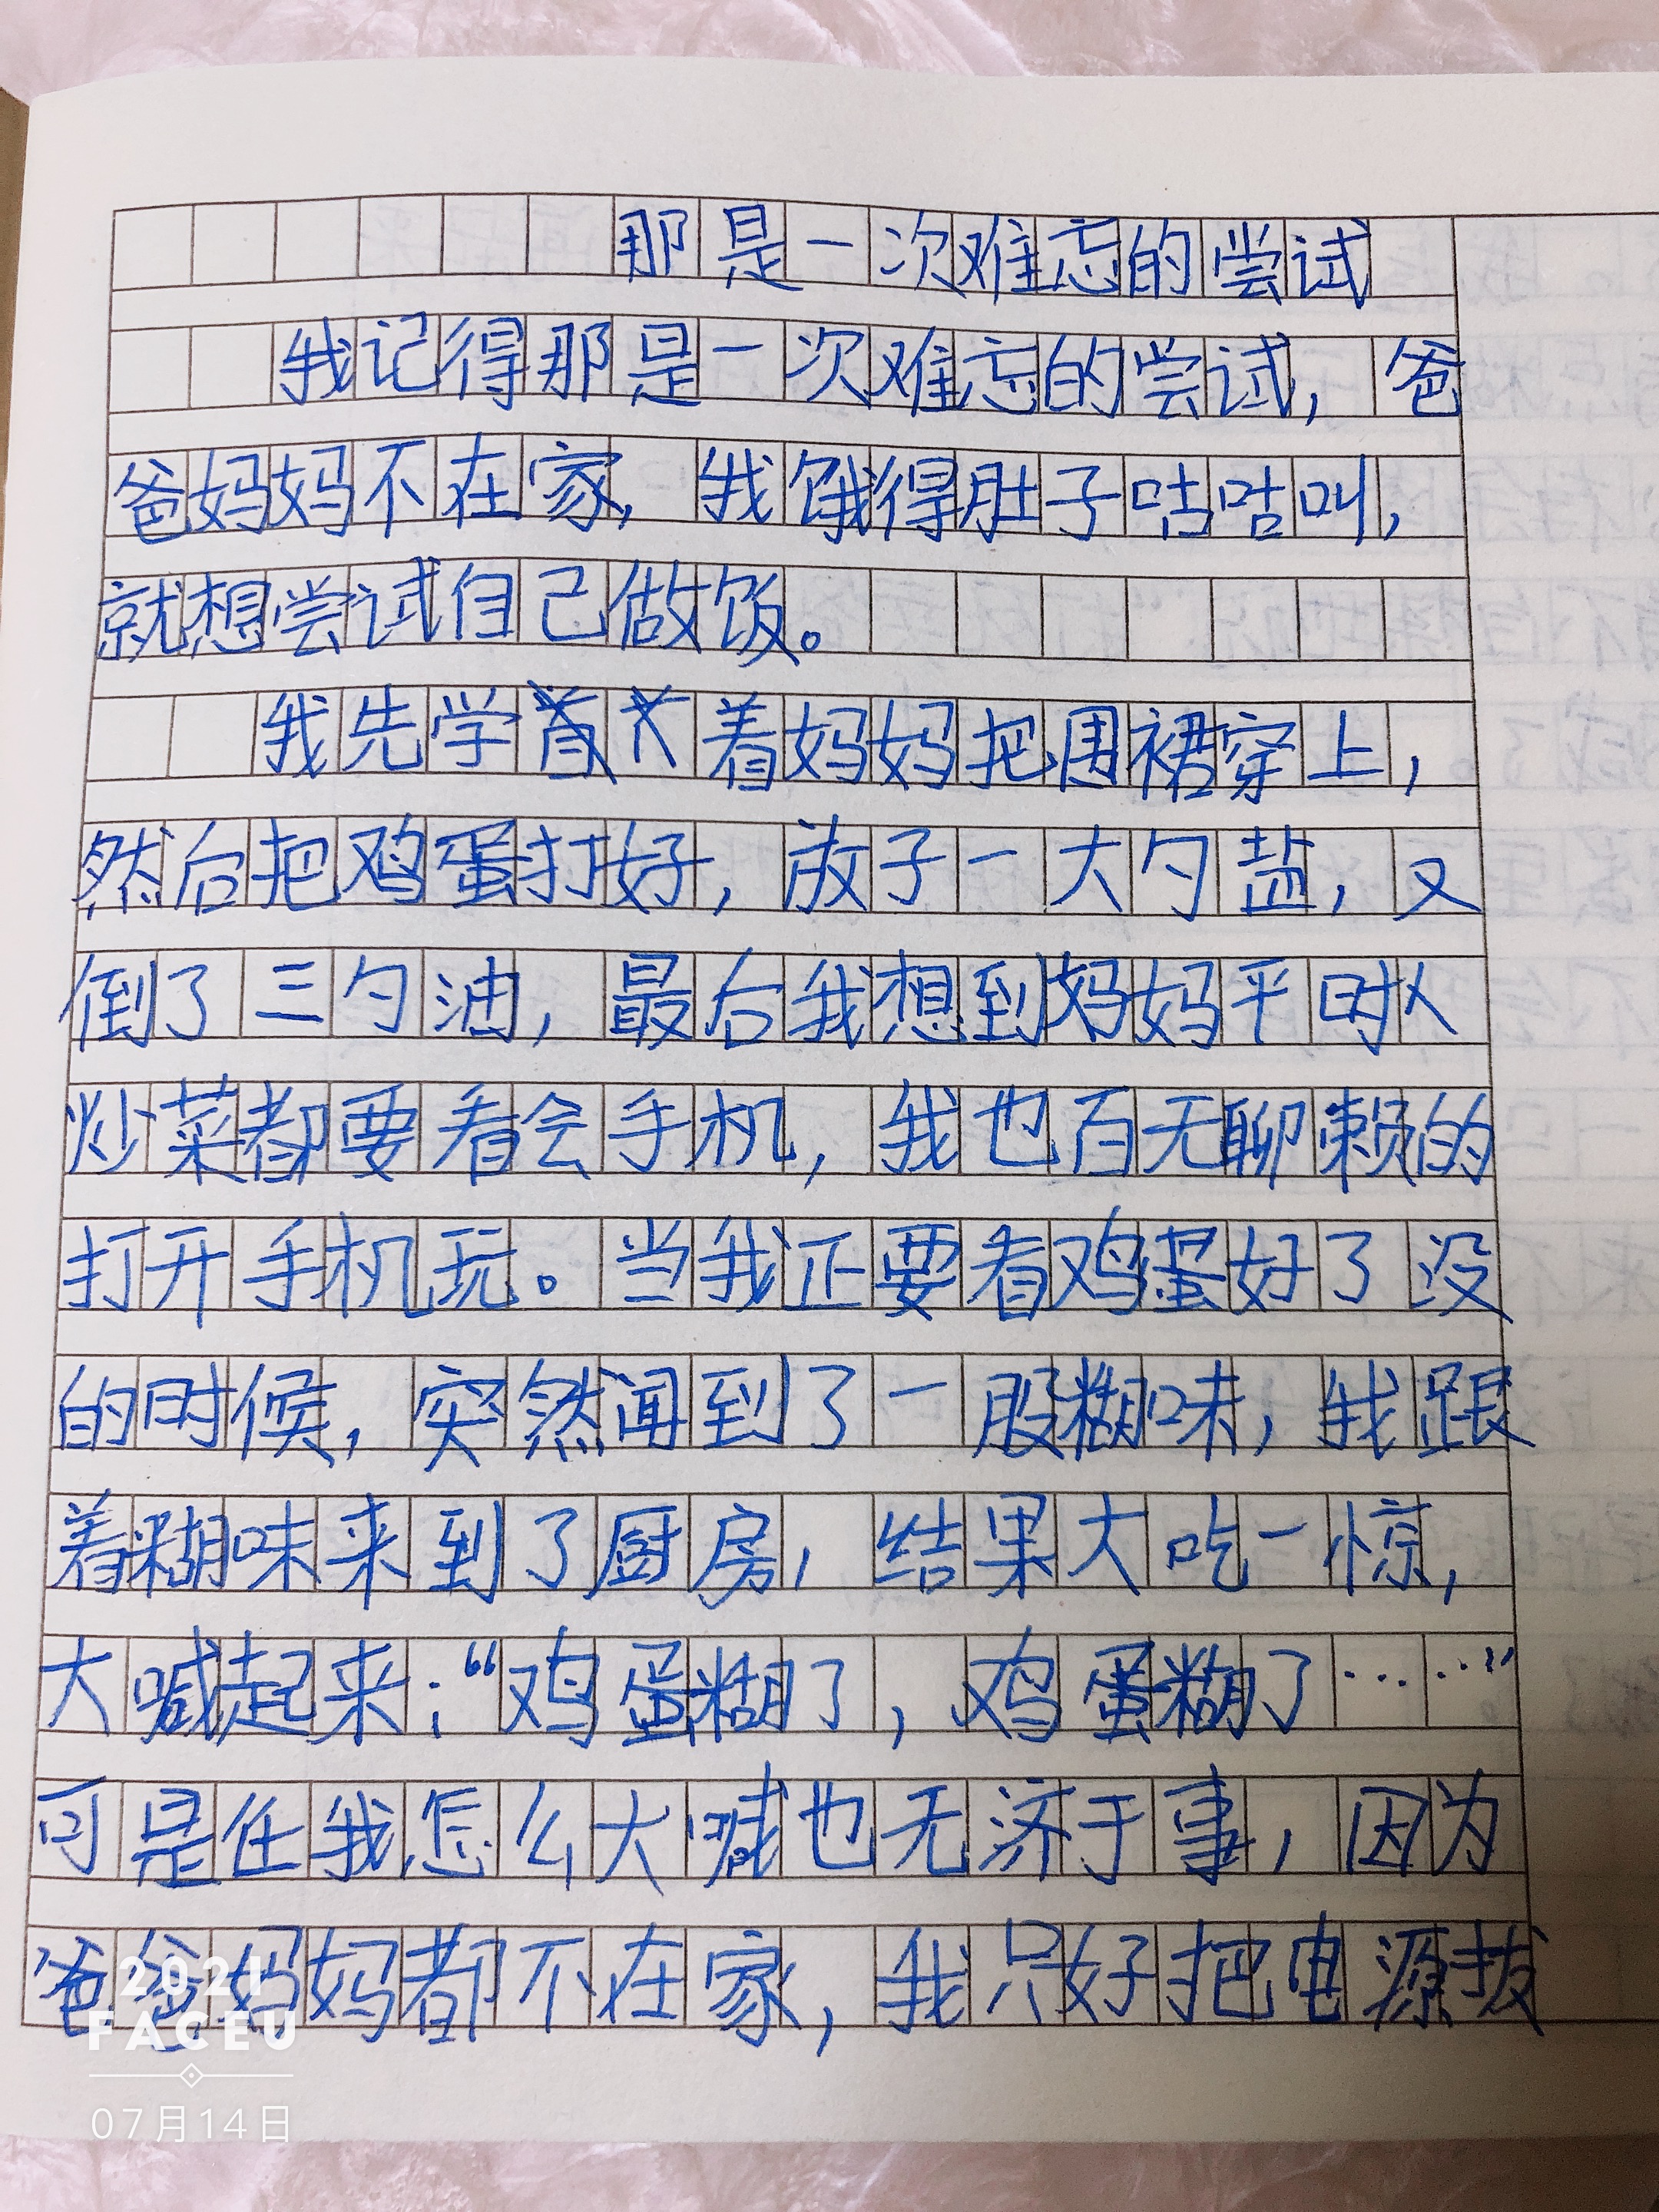 那是一次难忘的尝试
我记得那是一次难忘的尝试，爸
爸妈妈不在家，我饿得肚子咕咕叫，
就想尝试自己做饭。
我先学着妈妈把围裙穿上，
然后把鸡蛋打好，放子一大勺盐，又
倒了三勺油，最后我想到妈妈平时
炒菜都要看会手机，我也百无聊赖的
打开手机玩。当我正要看鸡蛋好了没
的时候，突然闻到了一股糊味，我跟
着糊味来到了厨房，结果大吃一惊，
大喊起来：“鸡蛋糊了，鸡蛋糊了……”
可是任我怎么大喊也无济于事，因为
爸爸妈妈都不在家，我只好把电源拔
2021
FACEU
07月14日